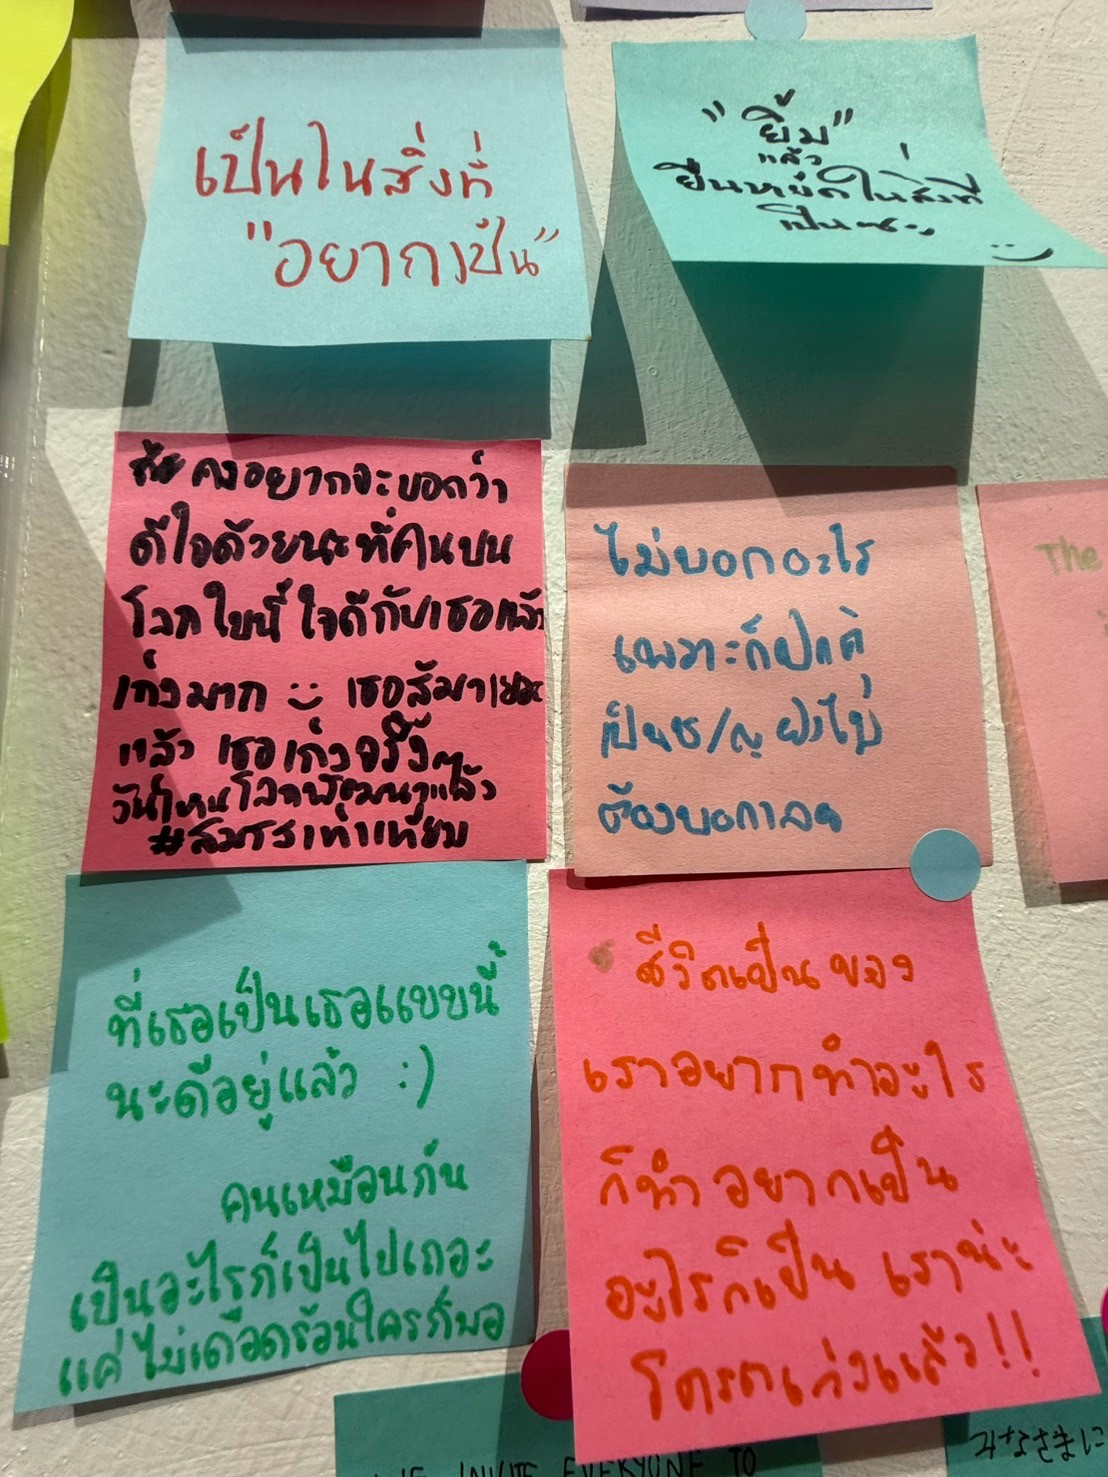 เป็นในสิ่งที่
"อยากเป็น"
"ยิ้ม"
แล้ว
ยืนหยัดในสิ่งที่
เป็นซะ
คงอยากจะบอกว่า
ดีใจด้วยนะที่คนบน
โลกใบนี้ ใจดีกับเธอแล้ว
เก่งมาก เธอสู้มาเยอะ
แล้ว เธอเก่งจริงๆ
โลกพัฒนาแล้ว
#สมรสเท่าเทียม
ไม่บอกอะไร
เพราะก็แค่
เป็นช/ญ ยังไม่
ต้องบอกเลย
The
ที่เธอเป็นเธอแบบนี้
นะดีอยู่แล้ว :)
คนเหมือนกัน
เป็นอะไรก็เป็นไปเถอะ
แค่ไม่เดือดร้อนใครก็พอ
ชีวิตเป็นของ
เราอยากทำอะไร
ก็ทำ อยากเป็น
อะไรก็เป็น เราน่ะ
โครตเก่งแล้ว!!
INVITE EVERYONE TO
みなさまに